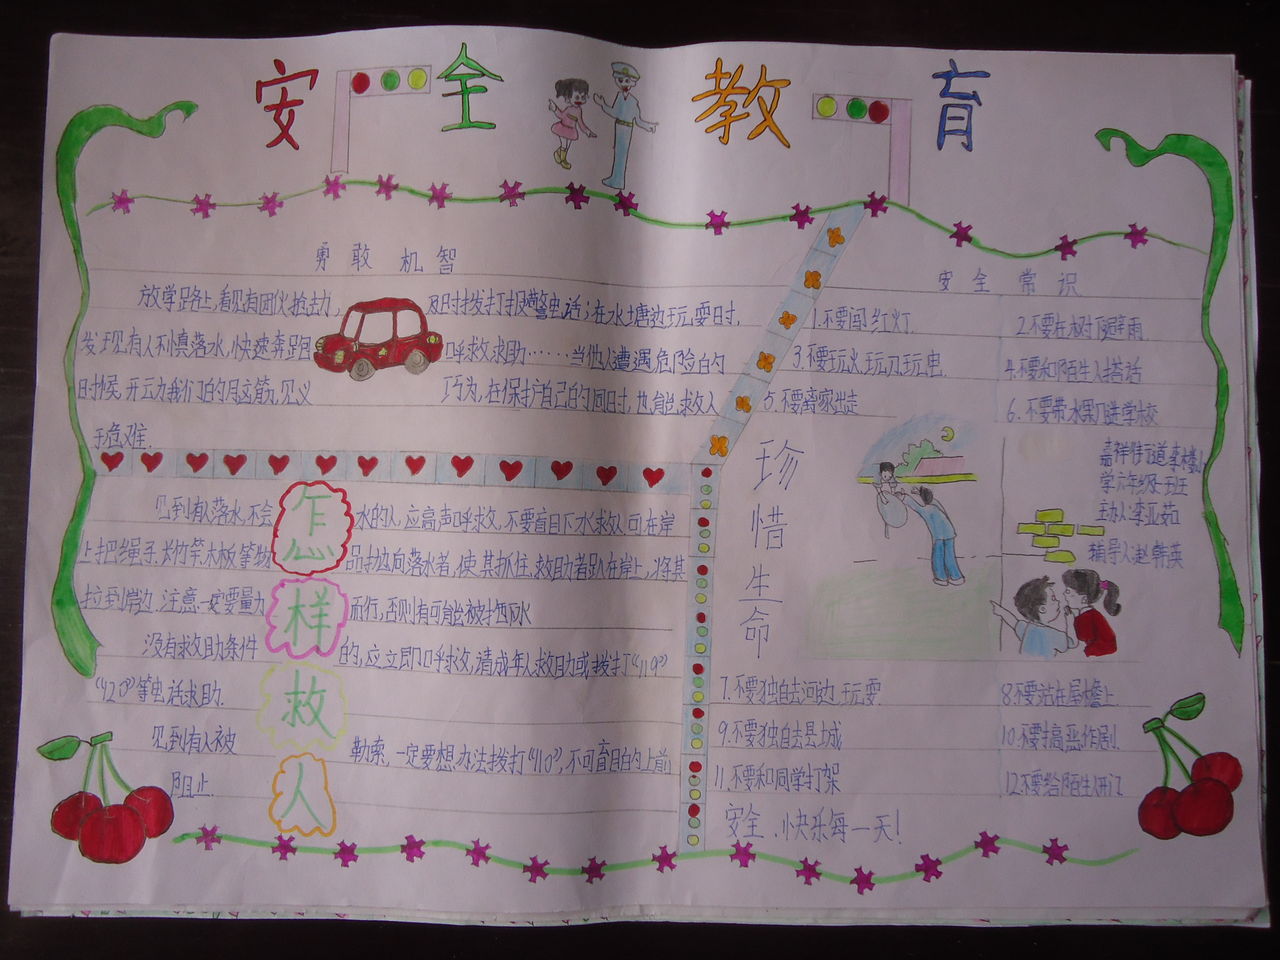 安全教育
勇敢机智
放学路上,看见有团伙抢劫,及时拨打报警电话;在水塘边玩耍时,
发现有人不慎落水,快速奔跑呼救求助……当他人遭遇危险的
时候,开动我们的脑筋,见义巧为,在保护自己的同时,也能救人
于危难.
怎样救人
见到有人落水,不会水的人,应高声呼救,不要盲目下水救人可在岸
上把绳子、长竹竿、木板等物品抛向落水者,使其抓住,救助者趴在岸上,将其
拉到岸边.注意一定要量力而行,否则有可能被拖下水
没有救助条件的,应立即呼救,请成年人救助或拨打“119”
“120”等电话求助.
见到有人被勒索,一定要想办法拨打“110”,不可盲目的上前
阻止.
安全常识
1.不要闯红灯.
2.不要在树下避雨.
3.不要玩火,玩刀,玩电.
4.不要和陌生人搭话
5.不要离家出走
6.不要带水果刀进学校
珍惜生命
嘉祥街道李楼小
学六年级
主办人:李亚茹
辅导人:赵
7.不要独自去河边玩耍.
8.不要站在屋檐上.
9.不要独自去县城
10.不要搞恶作剧.
11.不要和同学打架
12.不要给陌生人开门
安全、快乐每一天!